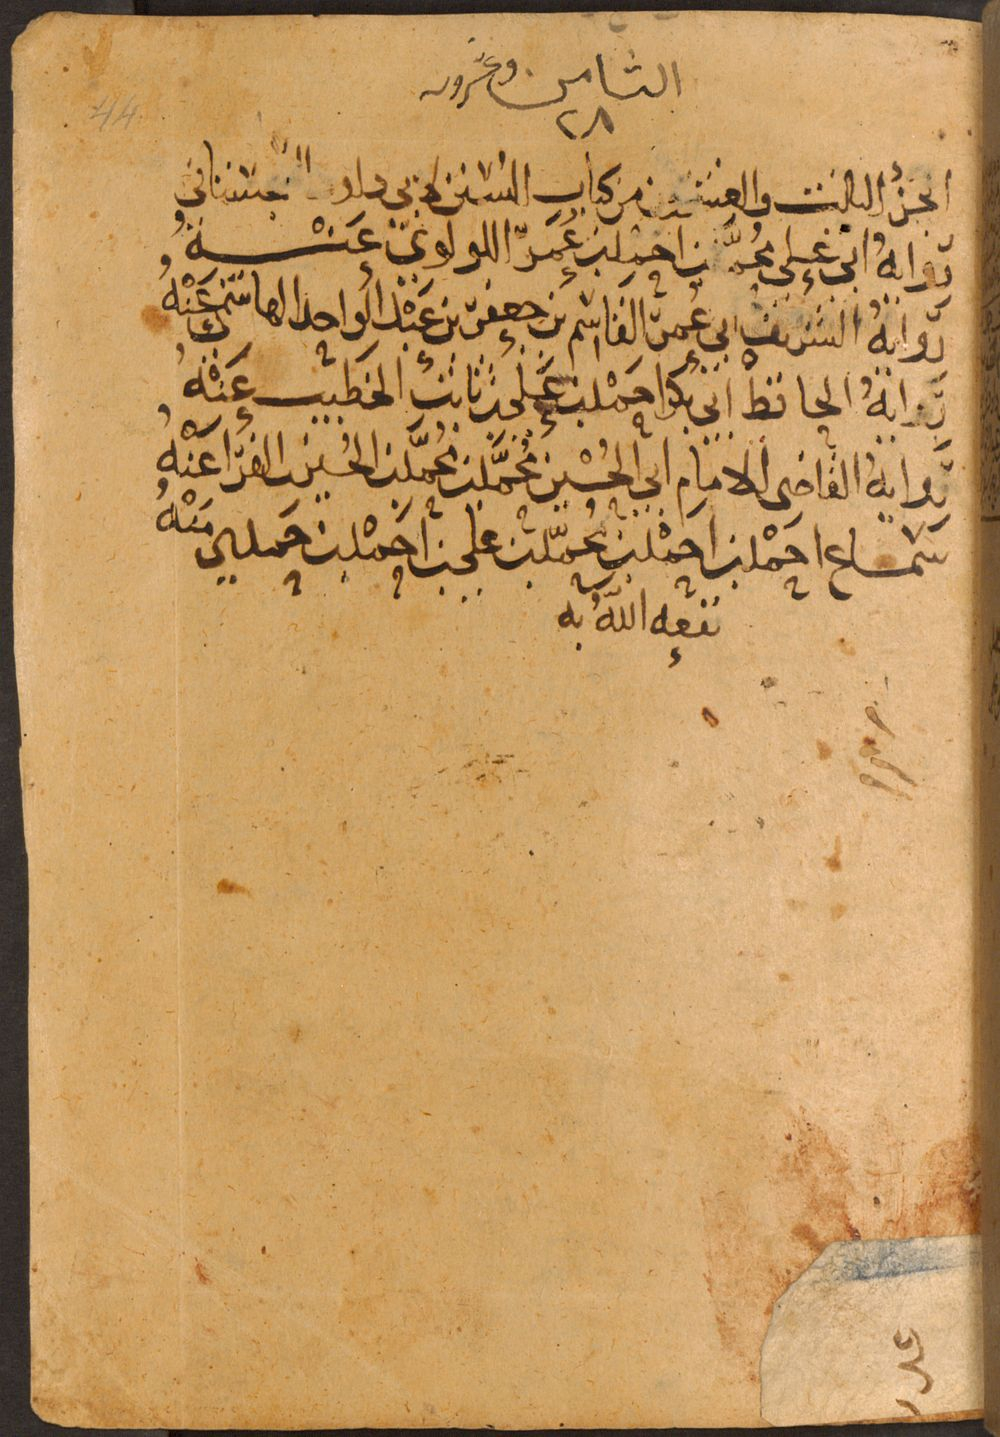 44
الثامن وعشرون
٢٨
الجزء الثالث والعشرين من كتاب السنن لابي داود السجستاني
رواية ابي علي محمد بن احمد بن عمر اللولوي عنه
رواية الشريف ابي عمر القاسم بن جعفر بن عبد الواحد الهاشمي عنه
رواية الحافظ ابي بكر احمد بن علي بن ثابت الخطيب عنه
رواية القاضي الامام ابي الحسين محمد بن محمد بن الحسين بن الفرا عنه
سماع احمد بن احمد بن محمد بن علي بن احمد بن حمدي منه
نفعه الله به